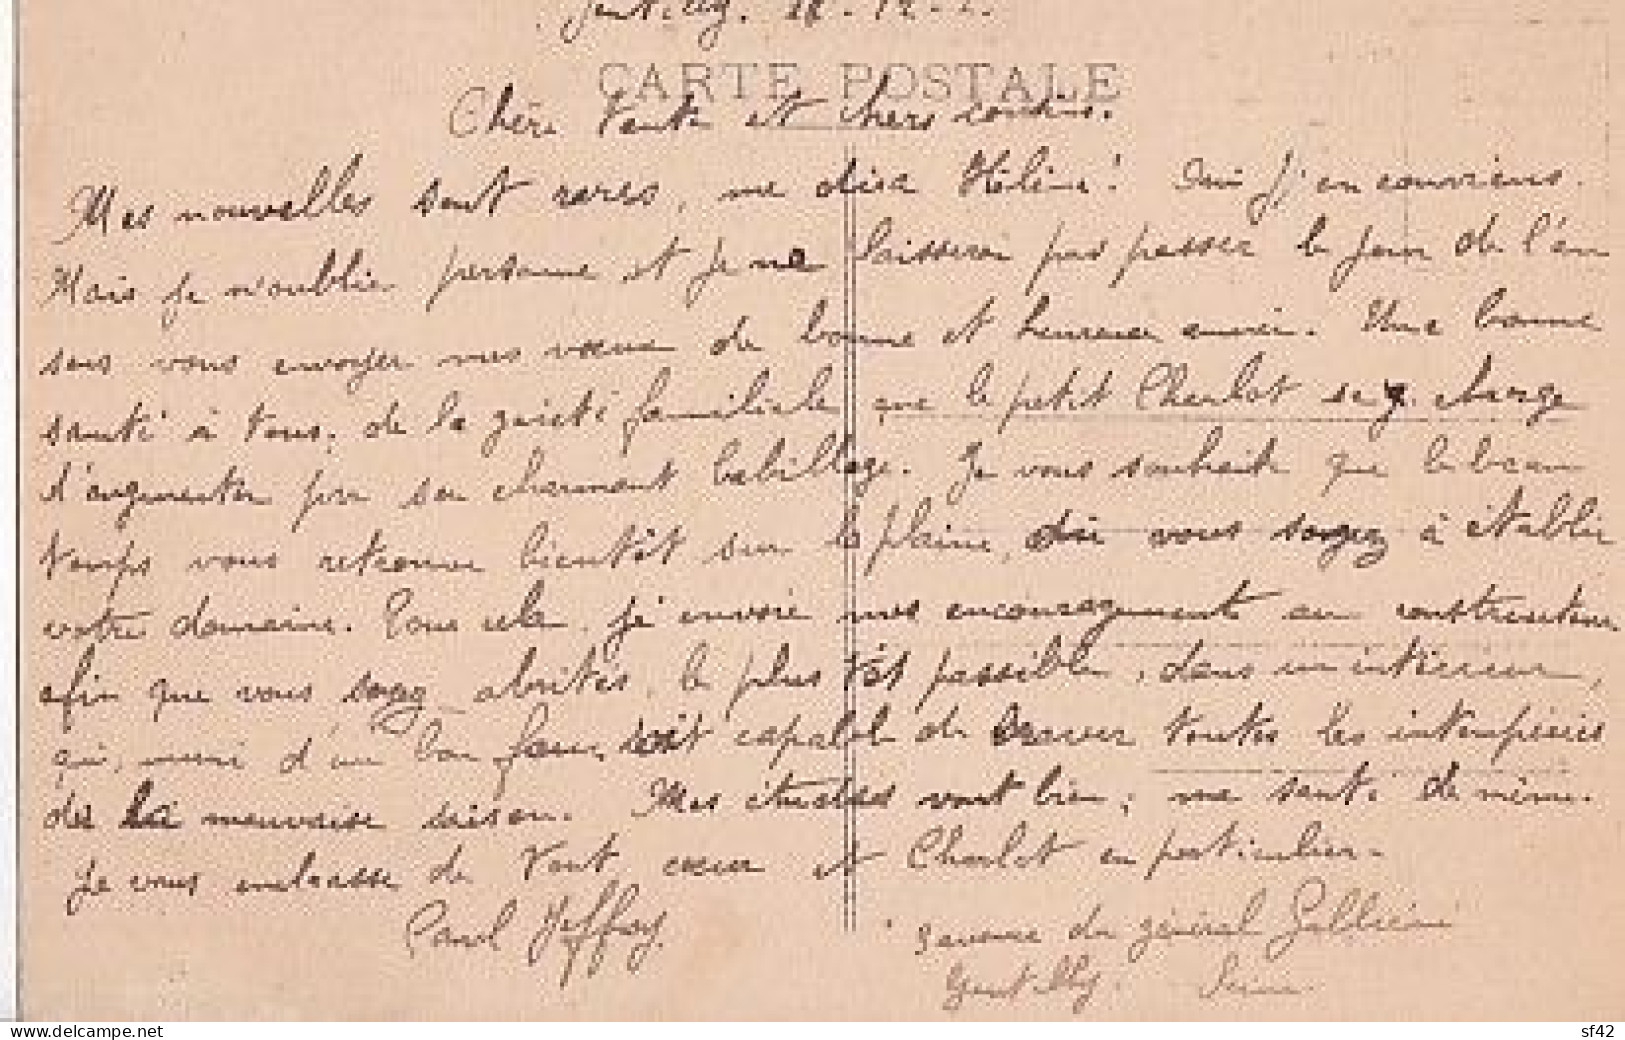 Gentilly. 28-12-2.
CARTE POSTALE
Chère tante et chers cousins.
Mes nouvelles sont rares, me dira Hélène! Oui j'en conviens.
Mais je n'oublie personne et je ne laisserai pas passer le jour de l'an
sans vous envoyer mes vœux de bonne et heureuse année. Une bonne
santé à tous, de la gaieté familiale que le petit Charlot se charge
d'augmenter par son charmant babillage. Je vous souhaite que le beau
temps vous retrouve bientôt sur la plaine, où vous songez à établir
votre domaine. Pour cela, j'envoie mes encouragements au constructeur
afin que vous soyez abrités, le plus tôt possible, dans un intérieur,
qui, muni d'un bon feu, soit capable de braver toutes les intempéries
de la mauvaise saison. Mes études vont bien; ma santé de même.
Je vous embrasse de tout cœur et Charlot en particulier.
Paul Jeffroy
avenue du général Galliéni
Gentilly. Seine.
delcampe.net
sf42